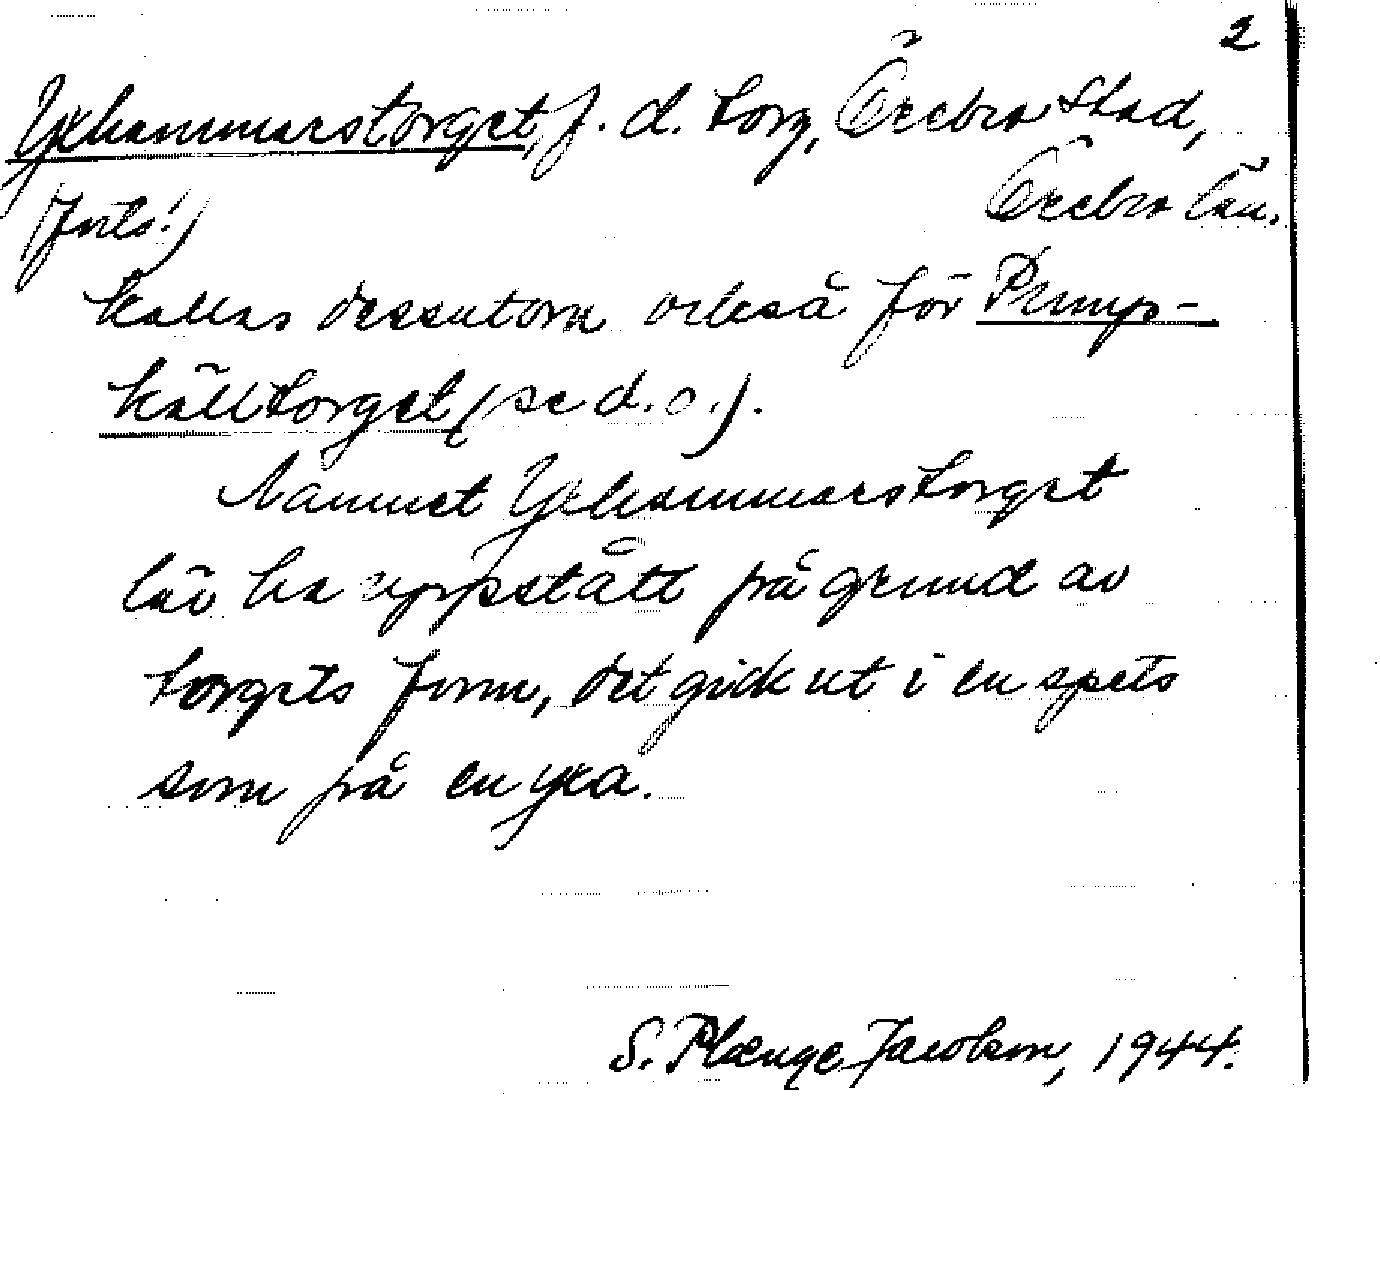 2
Yxhammarstorget, f. d. torg, Örebro stad,
Örebro län.
(forts.)
kallas dessutom också för Pump-
källtorget (se d. o.).
Namnet Yxhammarstorget
lär ha uppstått på grund av
torgets form, det gick ut i en spets
som på en yxa.
S. Plænge Jacobson, 1944.